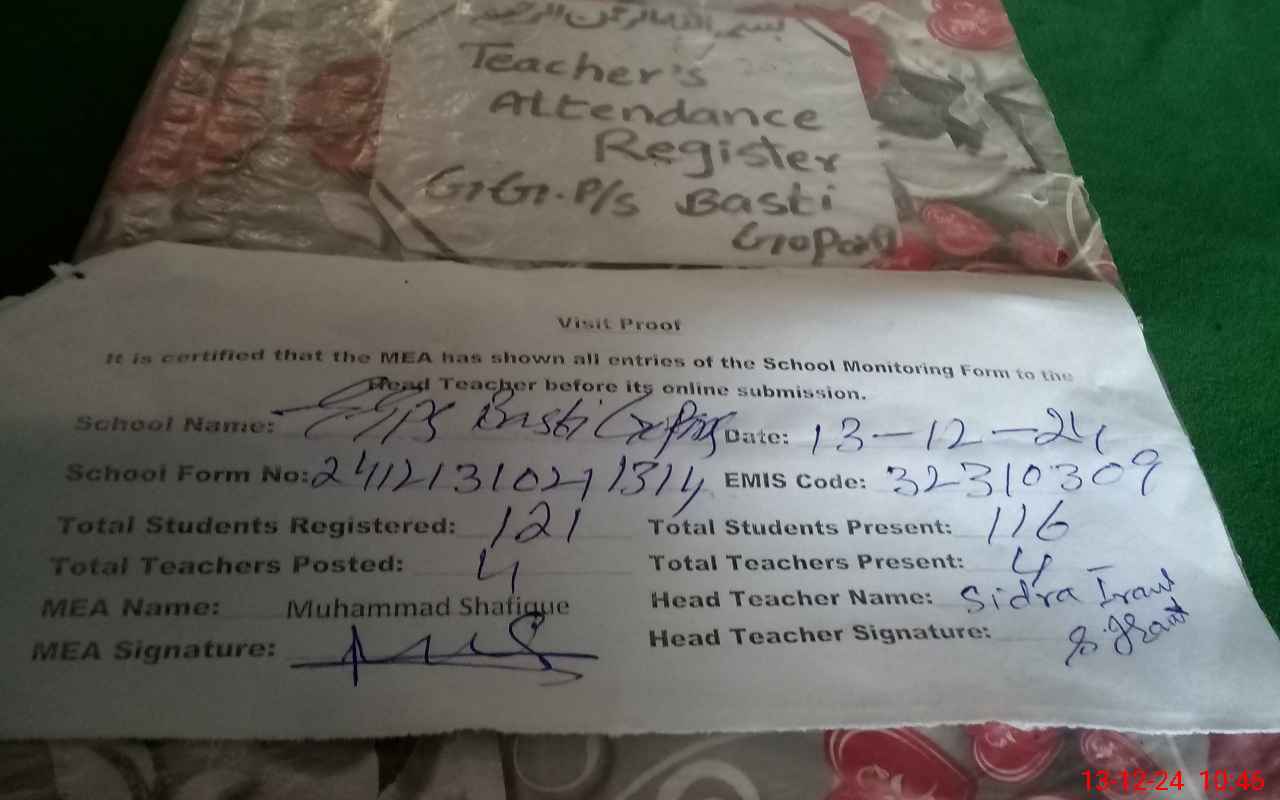 بسم الله الرحمن الرحيم
Teacher's
Attendance
Register
G.G.P/s Basti
Gropang
Visit Proof
It is certified that the MEA has shown all entries of the School Monitoring Form to the
Head Teacher before its online submission.
School Name: GGPS Basti Gropang Date: 13-12-24
School Form No: EMIS Code: 32310309
Total Students Registered: 121 Total Students Present: 116
Total Teachers Posted: 4 Total Teachers Present: 4
MEA Name: Muhammad Shafique Head Teacher Name: Sidra
MEA Signature: Head Teacher Signature:
13-12-24 10:46